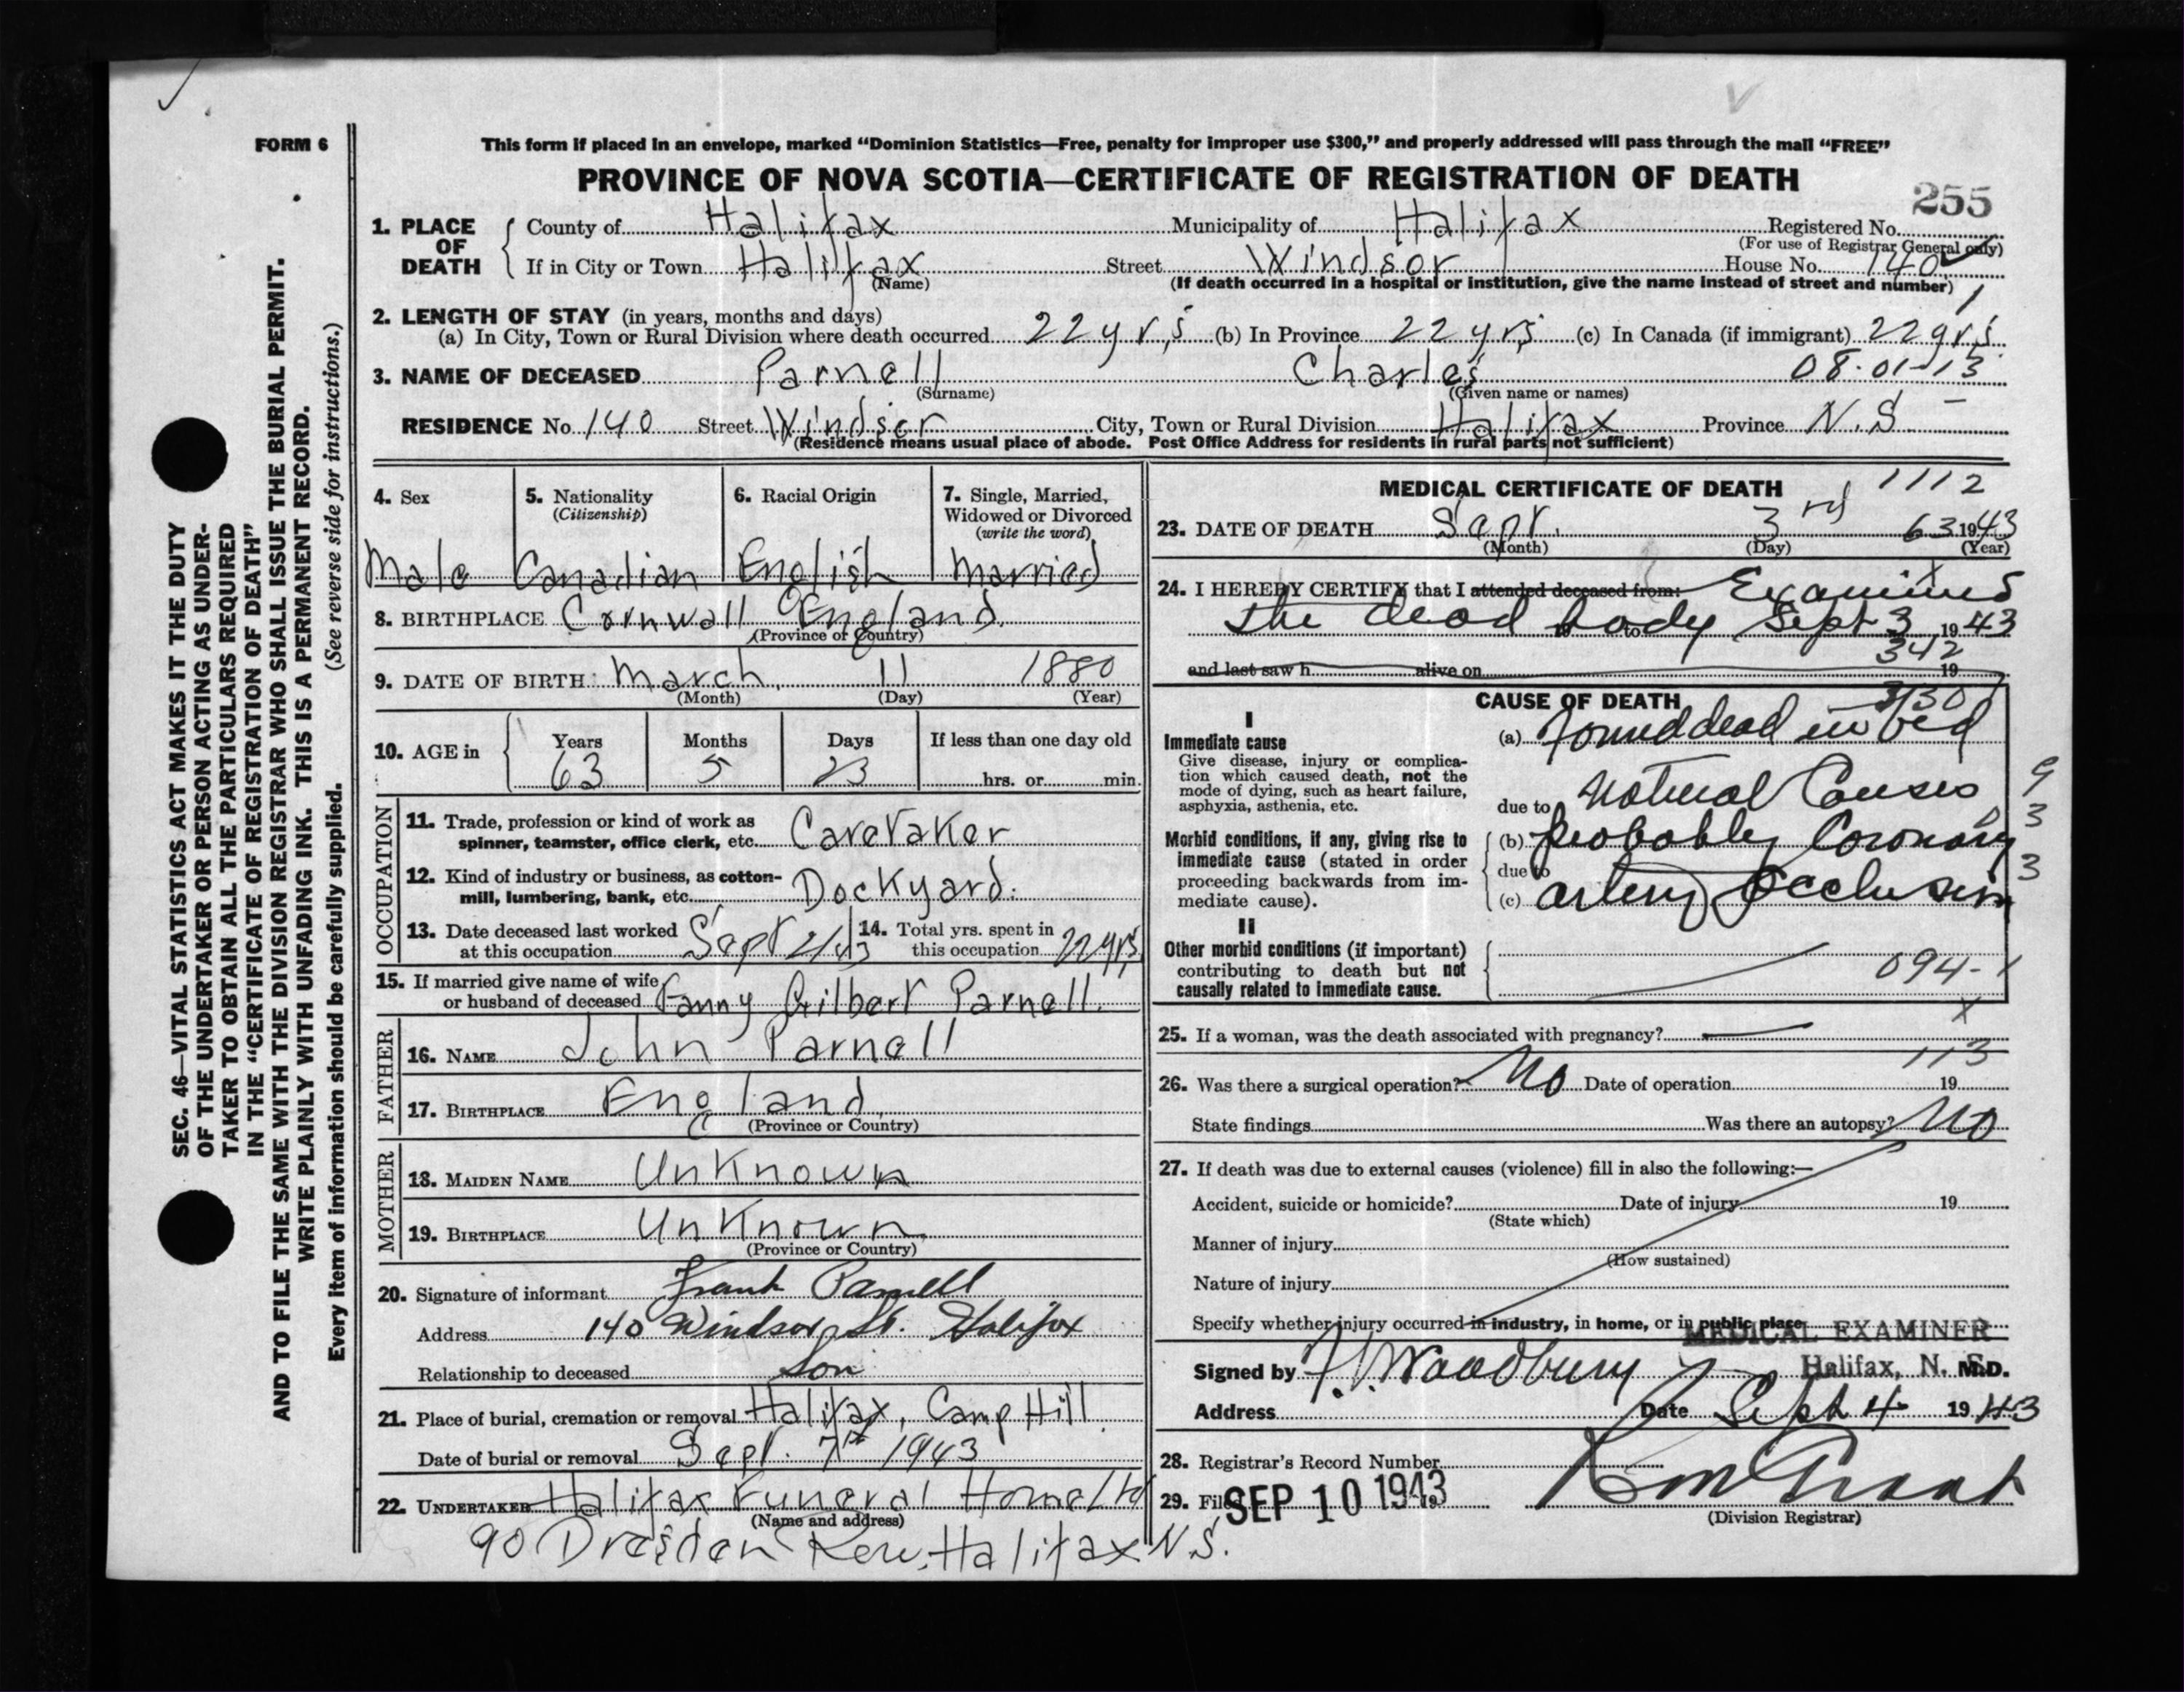 FORM 6
This form if placed in an envelope, marked “Dominion Statistics—Free, penalty for improper use $300,” and properly addressed will pass through the mail “FREE”
PROVINCE OF NOVA SCOTIA—CERTIFICATE OF REGISTRATION OF DEATH
255
1. PLACE OF DEATH { County of Halifax Municipality of Halifax Registered No.
(For use of Registrar General only)
If in City or Town Halifax Street Windsor House No. 140
(Name) (If death occurred in a hospital or institution, give the name instead of street and number)
1
2. LENGTH OF STAY (in years, months and days)
(a) In City, Town or Rural Division where death occurred 22 yrs (b) In Province 22 yrs (c) In Canada (if immigrant) 22 yrs
3. NAME OF DECEASED Parnell Charles 08-01-13
(Surname) (Given name or names)
RESIDENCE No. 140 Street Windsor City, Town or Rural Division Halifax Province N.S
(Residence means usual place of abode. Post Office Address for residents in rural parts not sufficient)
4. Sex 5. Nationality (Citizenship) 6. Racial Origin 7. Single, Married, Widowed or Divorced (write the word)
Male Canadian English Married
8. BIRTHPLACE Cornwall England.
(Province or Country)
9. DATE OF BIRTH: March 11 1880
(Month) (Day) (Year)
10. AGE in { Years Months Days If less than one day old
63 5 23 hrs. or min.
OCCUPATION
11. Trade, profession or kind of work as
spinner, teamster, office clerk, etc. Caretaker
12. Kind of industry or business, as cotton-
mill, lumbering, bank, etc. Dockyard.
13. Date deceased last worked
at this occupation Sept 2/43 14. Total yrs. spent in
this occupation 22 yrs
15. If married give name of wife
or husband of deceased Fanny Gilbert Parnell.
FATHER
16. NAME John Parnell
17. BIRTHPLACE England
(Province or Country)
MOTHER
18. MAIDEN NAME Unknown
19. BIRTHPLACE Unknown
(Province or Country)
20. Signature of informant Frank Parnell
Address 140 Windsor St. Halifax
Relationship to deceased Son
21. Place of burial, cremation or removal Halifax, Camp Hill
Date of burial or removal Sept. 7th 1943
22. UNDERTAKER Halifax Funeral Home Ltd
(Name and address)
90 Dresden Row, Halifax N.S.
MEDICAL CERTIFICATE OF DEATH 1112
23. DATE OF DEATH Sept. 3rd 63 1943
(Month) (Day) (Year)
24. I HEREBY CERTIFY that I attended deceased from: Examined
the dead body Sept 3 1943
342
and last saw h alive on 19
CAUSE OF DEATH
I
Immediate cause
Give disease, injury or complica-
tion which caused death, not the
mode of dying, such as heart failure,
asphyxia, asthenia, etc.
(a) Found dead in bed
due to Natural Causes
Morbid conditions, if any, giving rise to
immediate cause (stated in order
proceeding backwards from im-
mediate cause).
(b) Probably Coronary
due to
(c) artery Occlusion
9
3
3
II
Other morbid conditions (if important)
contributing to death but not
causally related to immediate cause.
094-1
25. If a woman, was the death associated with pregnancy?
113
26. Was there a surgical operation? No Date of operation 19
State findings Was there an autopsy? No
27. If death was due to external causes (violence) fill in also the following:—
Accident, suicide or homicide? Date of injury 19
(State which)
Manner of injury
(How sustained)
Nature of injury
Specify whether injury occurred in industry, in home, or in public place
MEDICAL EXAMINER
Halifax, N. S.
Signed by Woodbury M.D.
Address Date Sept 4 1943
28. Registrar's Record Number
29. Filed SEP 10 1943
(Division Registrar)
SEC. 46—VITAL STATISTICS ACT MAKES IT THE DUTY
OF THE UNDERTAKER OR PERSON ACTING AS UNDER-
TAKER TO OBTAIN ALL THE PARTICULARS REQUIRED
IN THE “CERTIFICATE OF REGISTRATION OF DEATH”
AND TO FILE THE SAME WITH THE DIVISION REGISTRAR WHO SHALL ISSUE THE BURIAL PERMIT.
WRITE PLAINLY WITH UNFADING INK. THIS IS A PERMANENT RECORD.
Every item of information should be carefully supplied. (See reverse side for instructions.)